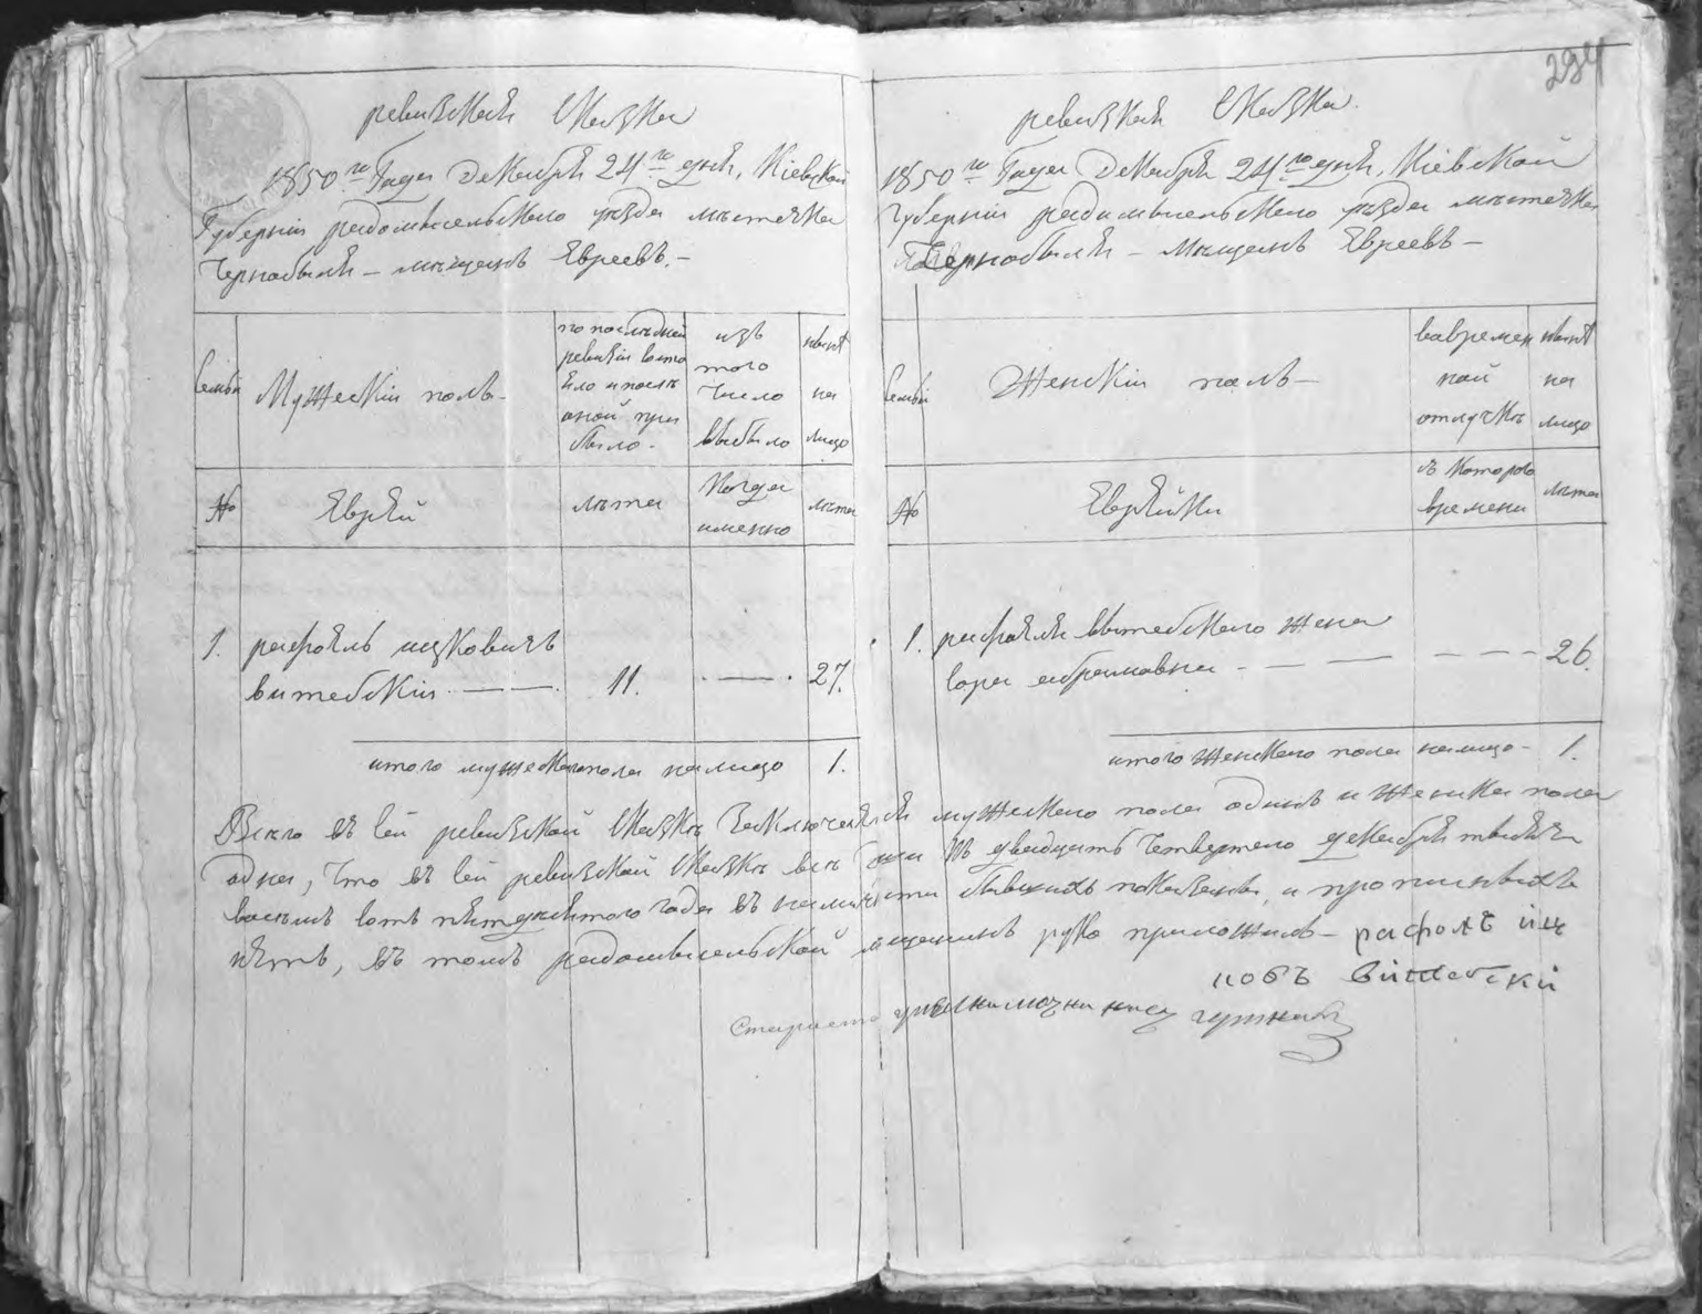 ревизская сказка
1850го Года Декабря 24го дня, Кіевской
Губерніи радомысельского уезда местечка
Чернобыля – мещанъ Евреевъ. –
семьи
Мужескій полъ –
по последней ревизіи состояло и после оной прибыло –
изъ того число выбыло
ныне на лицо
№
Еврей
лета
Когда именно
лета
1.
рафоель ицковичъ
витебскій
11.
27.
итого мужеска пола на лицо 1.
294
ревизкая сказка
1850го Года Декабря 24го дня, Кіевской
Губерніи радомысельского уезда местечка
Чернобыля – мещанъ Евреевъ –
семьи
Женскій полъ –
вовременной отлучке
ныне на лицо
№
Еврейки
съ которого времени
лета
1.
рафоеля витебского жена
сора абрамовна
26.
итого женского пола на лицо – 1.
Всего въ сей ревизской сказке заключается мужеского пола одинъ и женска пола
одна, что въ сей ревизской сказке все къ двадцать четвертого декабря тысяча
восемь сотъ пятдесятого года въ наличности бывшихъ показаны, и прописныхъ
нетъ, въ томъ радомысельской мещанинъ руку приложилъ – рафоль иц
ковъ витебскій
Староста